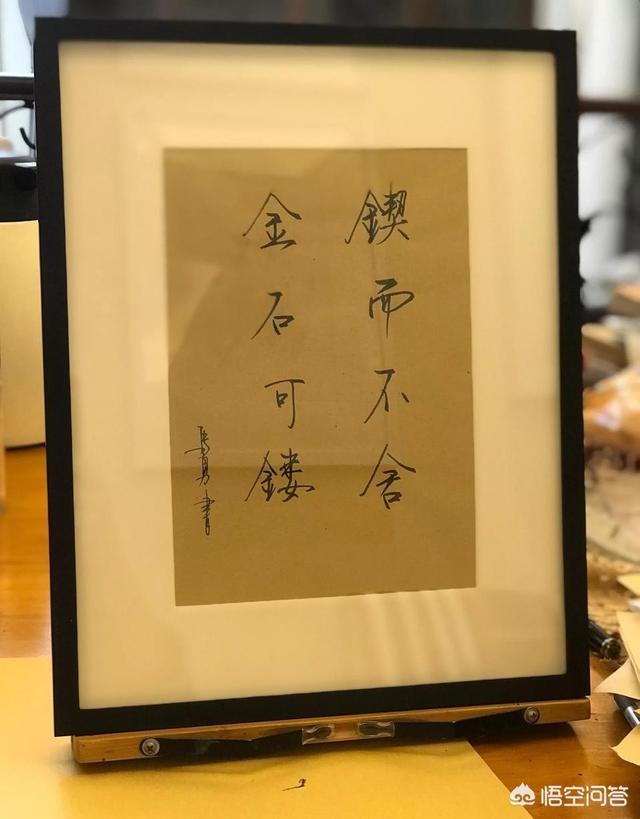 鍥而不舍
金石可镂
马勇书
悟空问答